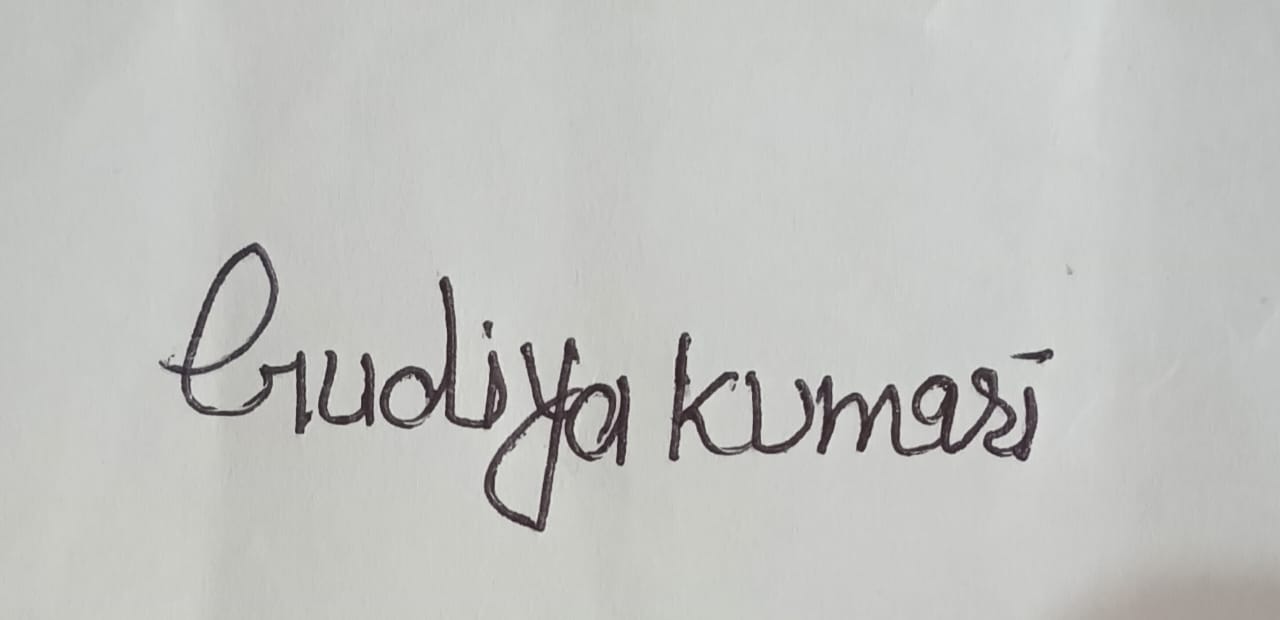 Gudiya kumari